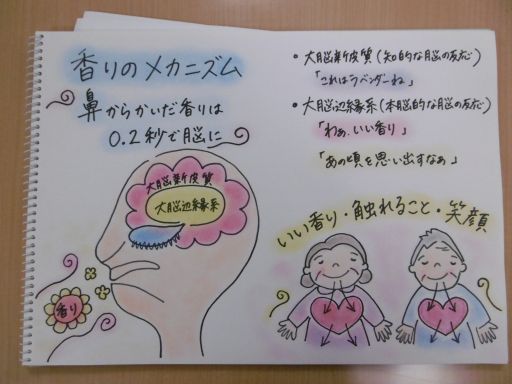 香りのメカニズム
鼻からかいだ香りは
0.2秒で脳に
大脳新皮質
大脳辺縁系
香り
• 大脳新皮質(知的な脳の反応)
「これはラベンダーね」
• 大脳辺縁系(本脳的な脳の反応)
「わぁ、いい香り」
「あの頃を思い出すなぁ」
いい香り・触れること・笑顔